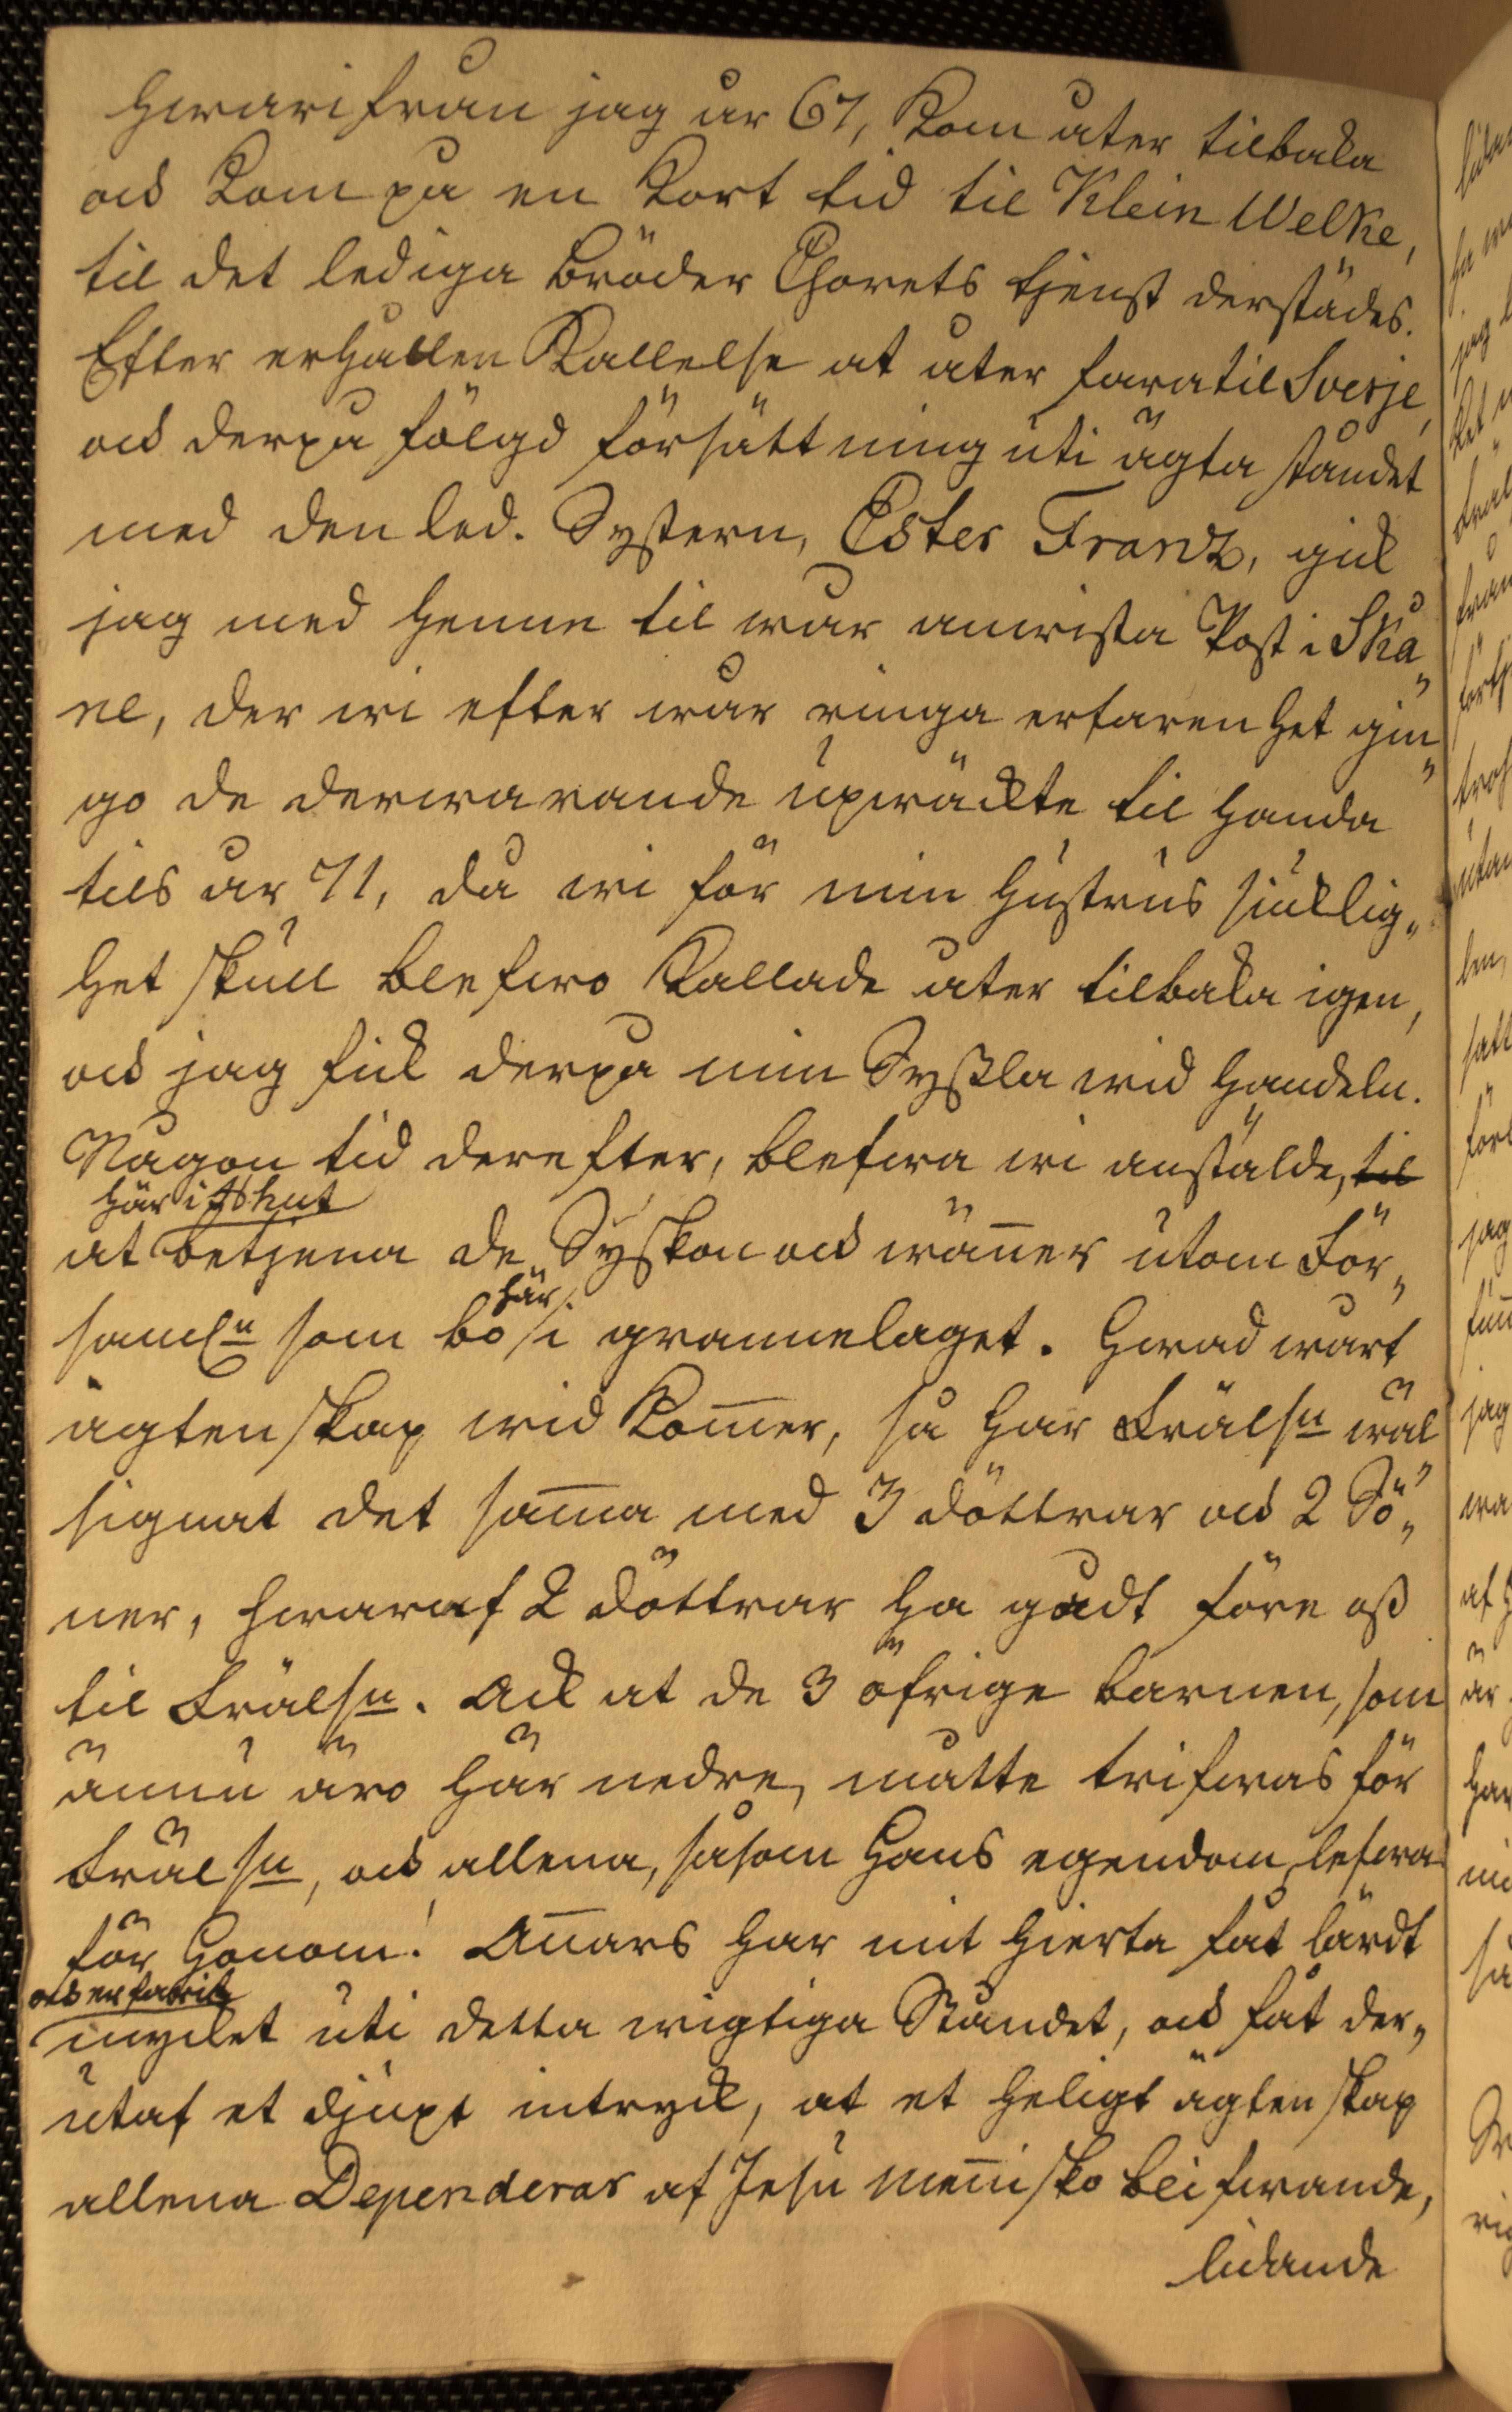 hwarifrån jag år 67, kom åter tilbaka
ock kom på en kort tid til Klein Welke,
til det lediga Bröder Chorets tjenst derstädes.
Efter erhållen Kallelse at åter fara til Sverje,
ock derpå följd försättning uti ägta ståndet
med den led. Systern, Ester Franz, gick
jag med henne til wår anwista Post i Skå„
ne, der wi efter wår ringa erfarenhet gin„
go de derwarande upwäckte til handa
tils år 71, då wi för min hustrus siuklig„
het skull blefwo kallade åter tilbaka igen,
ock jag fick derpå min Syßla wid handeln.
Någon tid derefter, blefwa wi anstälde, til
här i Hhut
at betjena de Syskon ock wänner utom För„
här
saml<u>n</u> som bo i grannelaget. Hwad wårt
ägtenskap wid kom̅er, så har Fräls<u>n</u> wäl
signat det sam̅a med 3 döttrar ock 2 Sö„
ner, hwaraf 2 döttrar ha gådt före oß
til Fräls<u>n</u>. Ack at de 3 öfrige barnen, som
ännu äro här nedre, måtte trifwas för
Fräls<u>n</u>, ock allena, såsom Hans egendom, lefwa
för Honom! An̅ars har mit hierta fåt lärdt
ock erfarit
mycket uti detta wigtiga Ståndet, ock fåt der„
utaf et djupt intryck, at et heligt ägtenskap
allena Dependerar af Jesu men̅isko blifwande,
lidande